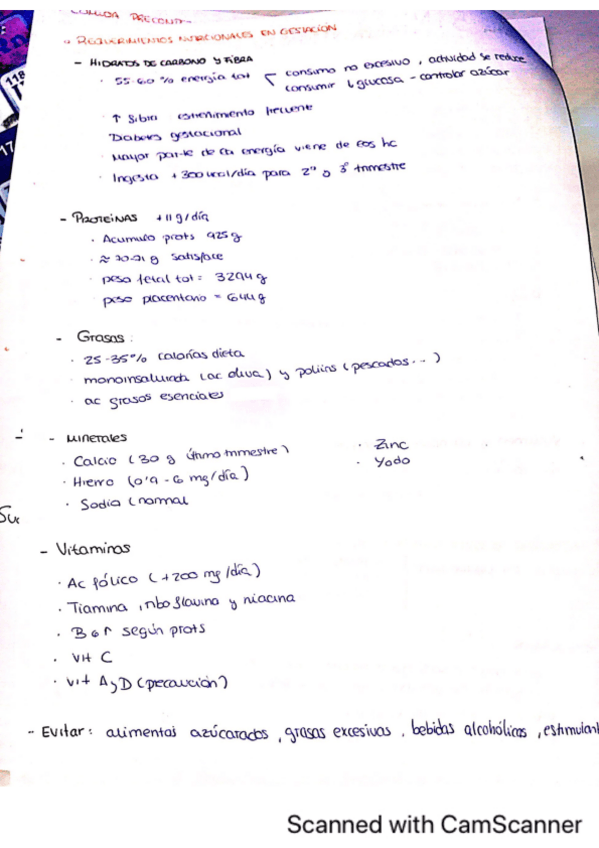 → REQUERIMIENTOS NUTRICIONALES EN GESTACIÓN
- HIDRATOS DE CARBONO Y FIBRA
· 55-60 % energía tot < consumo no excesivo, actividad se reduce
consumir ↓ glucosa - controlar azúcar
· ↑ Fibra estreñimiento frecuente
Diabetes gestacional
· Mayor parte de la energía viene de los hc
· Ingesta +300 kcal/día para 2º o 3º trimestre
- PROTEINAS +11 g/día
· Acumulo prots 925 g
· satisface
· peso fetal tot = 3294 g
peso placentario = 644 g
- Grasas:
· 25-35% calorías dieta
· monoinsaturada (ac oliva) y poliins (pescados...)
· ac grasos esenciales
- MINERALES
· Calcio (30 g último trimestre)
· Hierro (0'9 - 6 mg/día)
· Sodio (normal
· Zinc
· Yodo
- Vitaminas
· Ac fólico (+200 mg/día)
· Tiamina, riboflavina y niacina
· B6 según prots
· Vit C
· Vit A y D (precaución)
- Evitar: alimentos azúcarados, grasas excesivas, bebidas alcohólicas, estimulant
Scanned with CamScanner